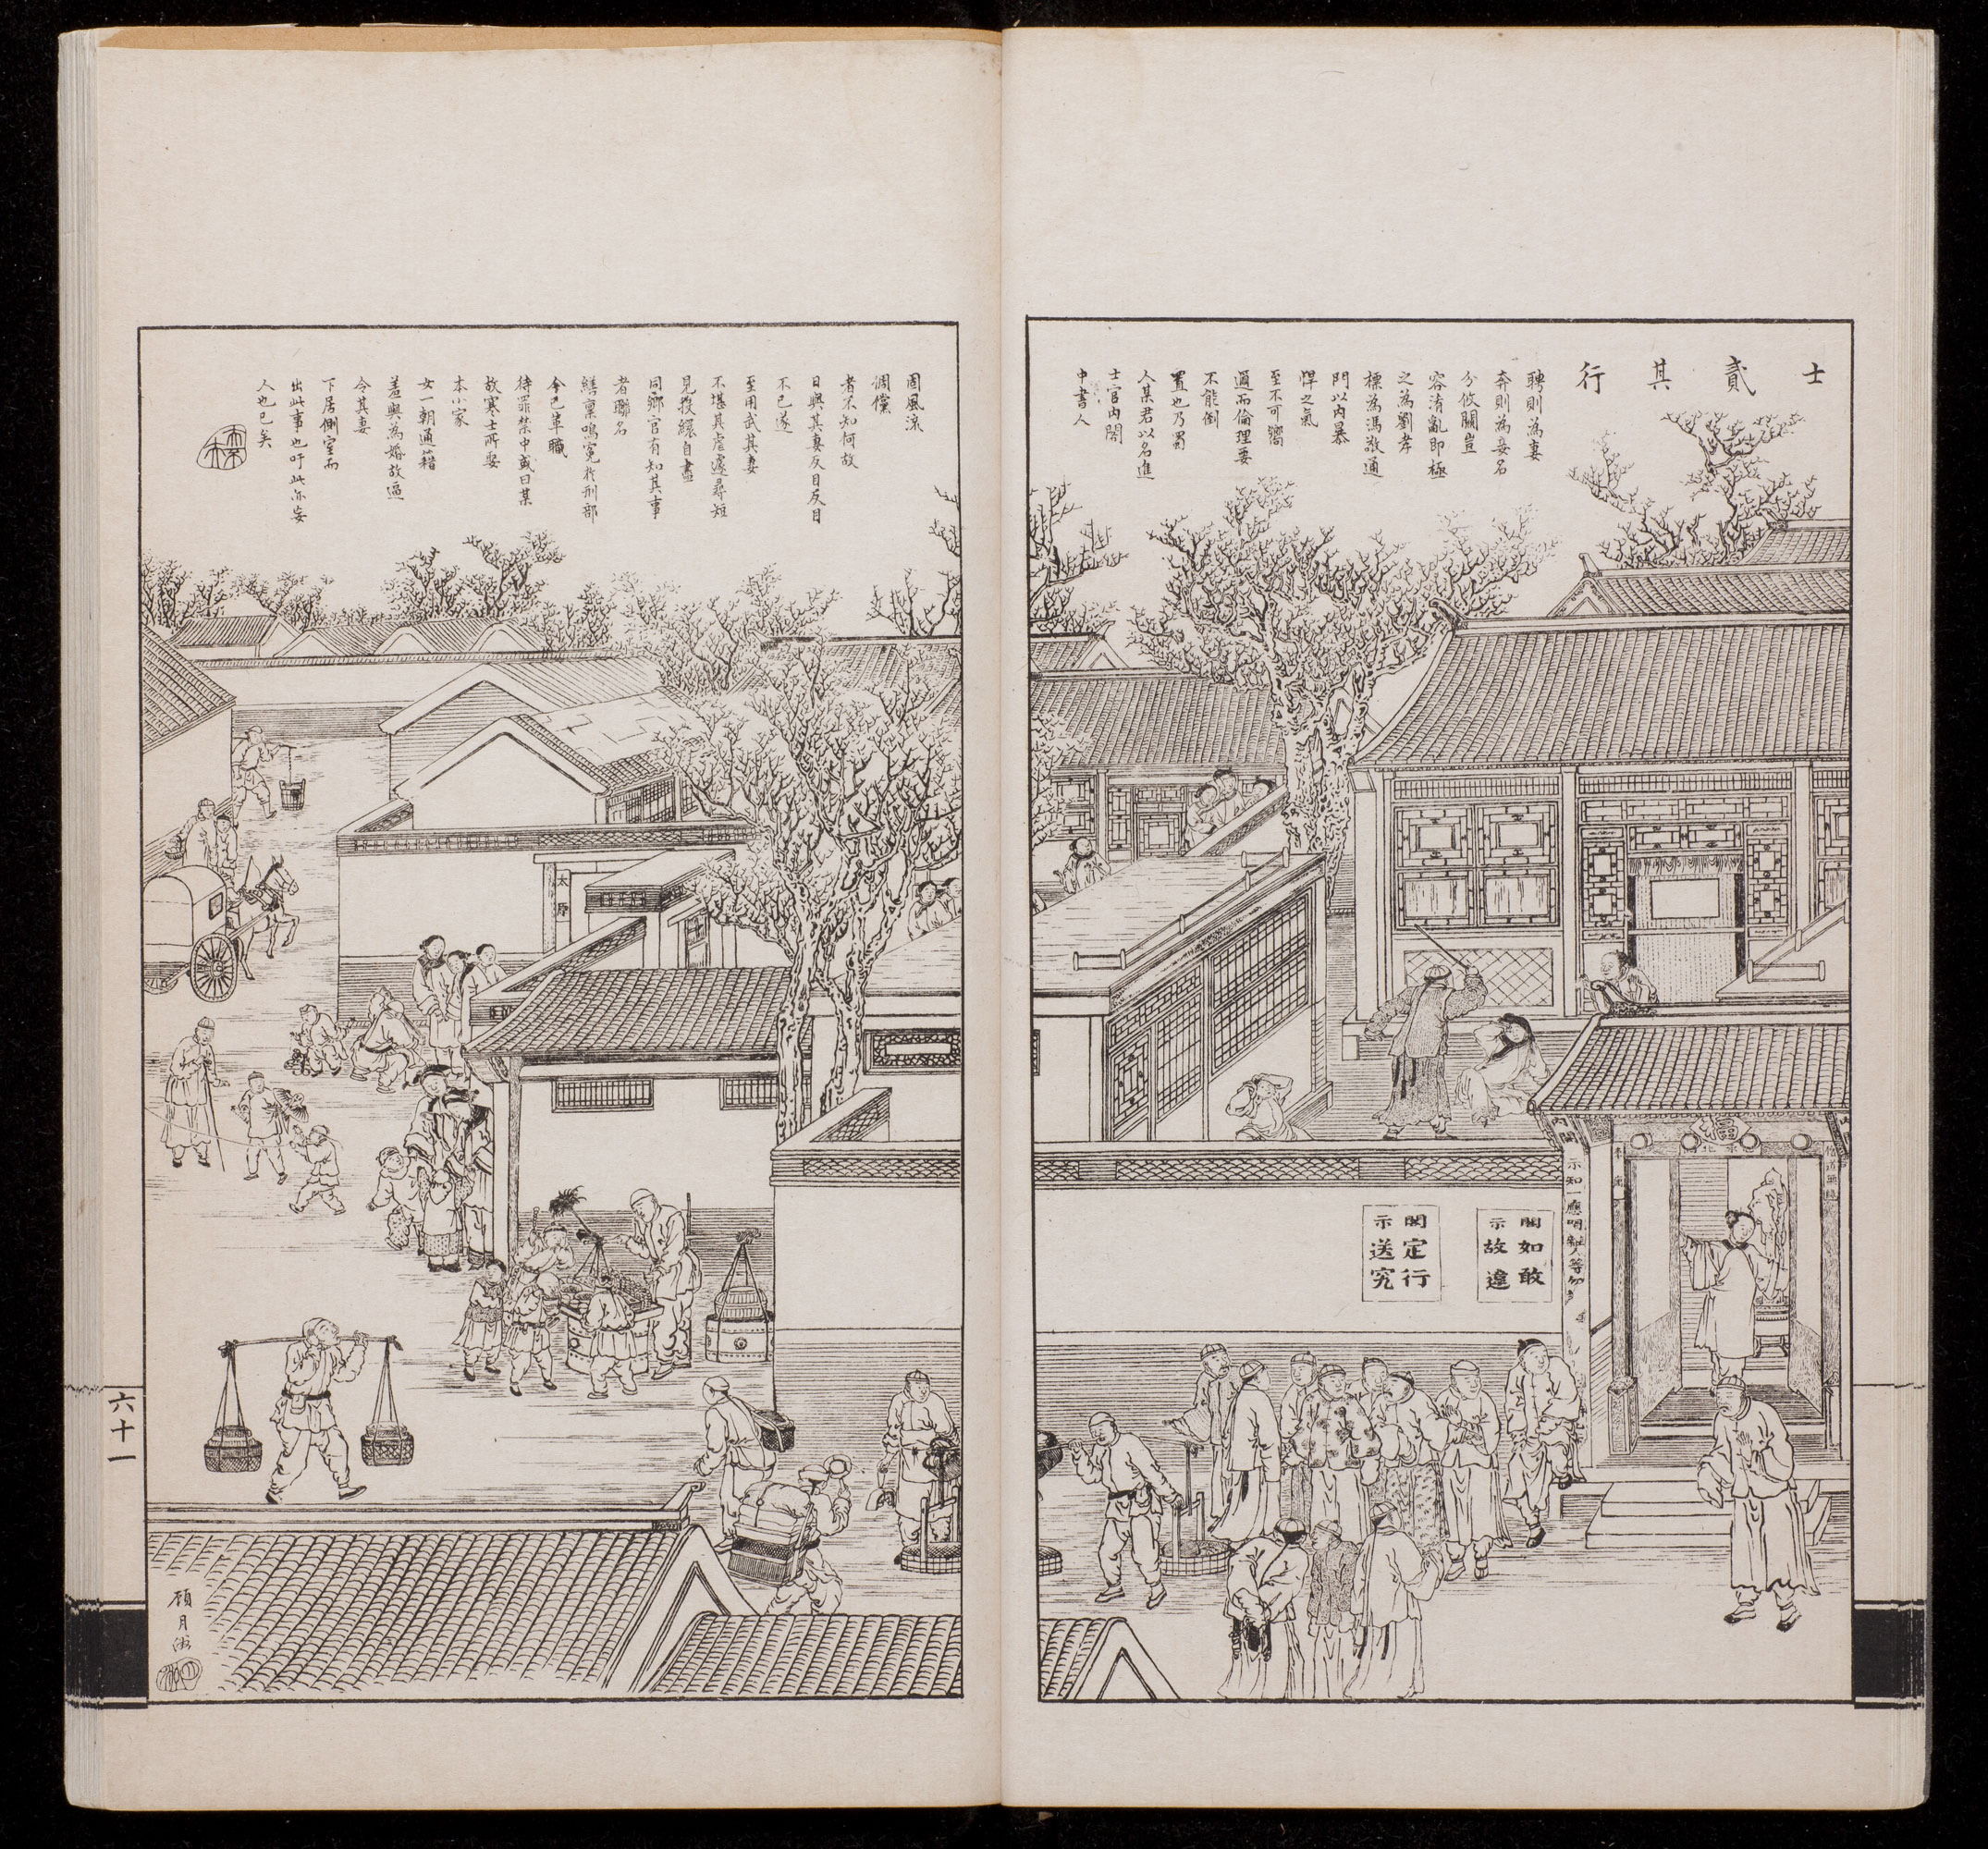 士貳其行
聘則為妻
奔則為妾名
分攸關豈
容淆亂即極
之為劉孝
標為馮敬通
門以內暴
悍之氣
至不可嚮
邇而倫理要
不能倒
置也乃蜀
人某君以名進
士官內閣
中書人
固風流
倜儻
者不知何故
日與其妻反目反目
不已遂
至用武其妻
不堪其虐遽尋短
見投繯自盡
同鄉官有知其事
者聯名
繕稟鳴冤於刑部
今已革職
待罪禁中或曰某
故寒士所娶
本小家
女一朝通籍
羞與為婚故逼
令其妻
下居側室而
出此事也吁此亦妄
人也已矣
福
內閣
示知一應閒雜人等勿
閣如敢
示故違
閣定行
示送究
六十一
顧月洲